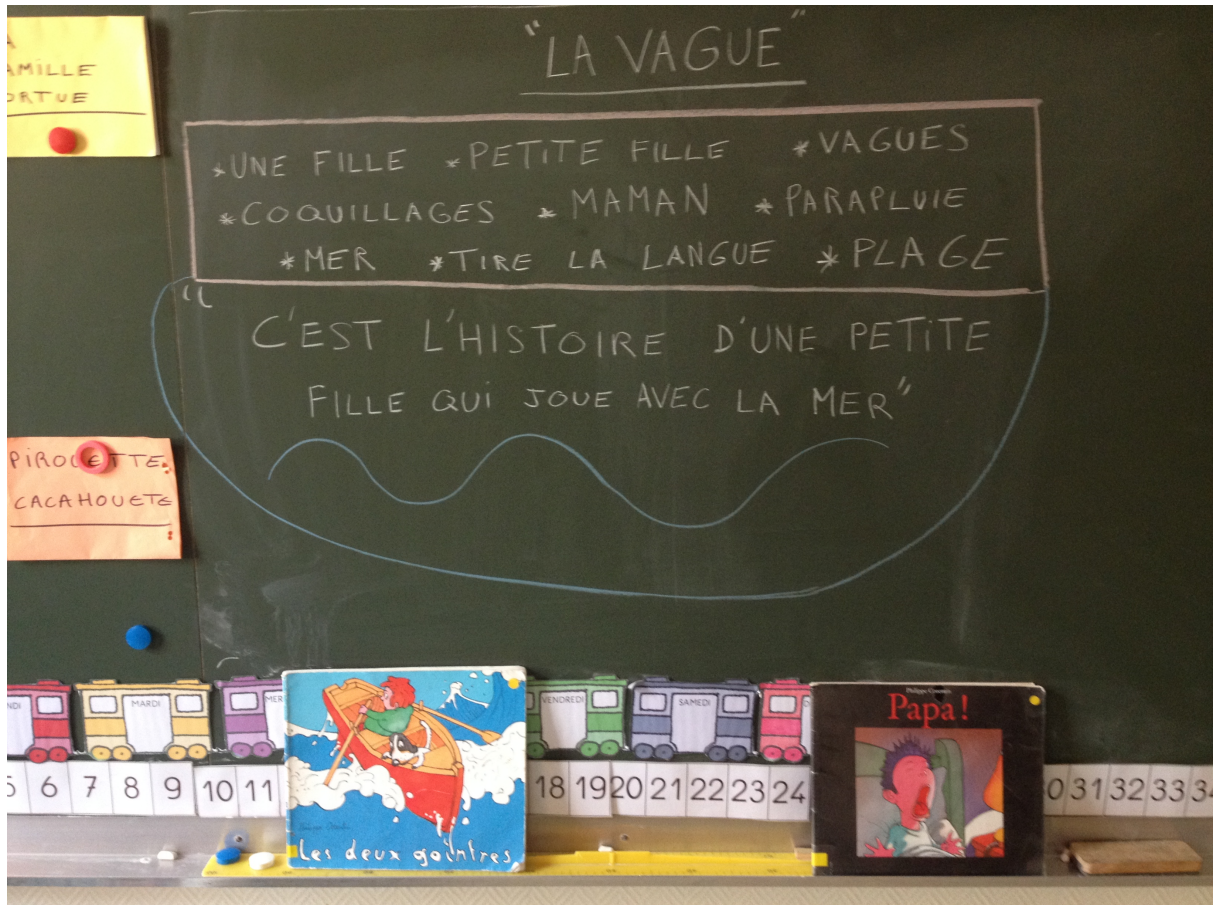 "LA VAGUE"
*UNE FILLE *PETITE FILLE *VAGUES
*COQUILLAGES *MAMAN *PARAPLUIE
*MER *TIRE LA LANGUE *PLAGE
"C'EST L'HISTOIRE D'UNE PETITE
FILLE QUI JOUE AVEC LA MER"
PIROUETTE
CACAHOUETE
MARDI
VENDREDI
SAMEDI
6 7 8 9 10 11
18 19 20 21 22 23 24
31 32 33
Les deux goinfres
Philippe Corentin
Papa!